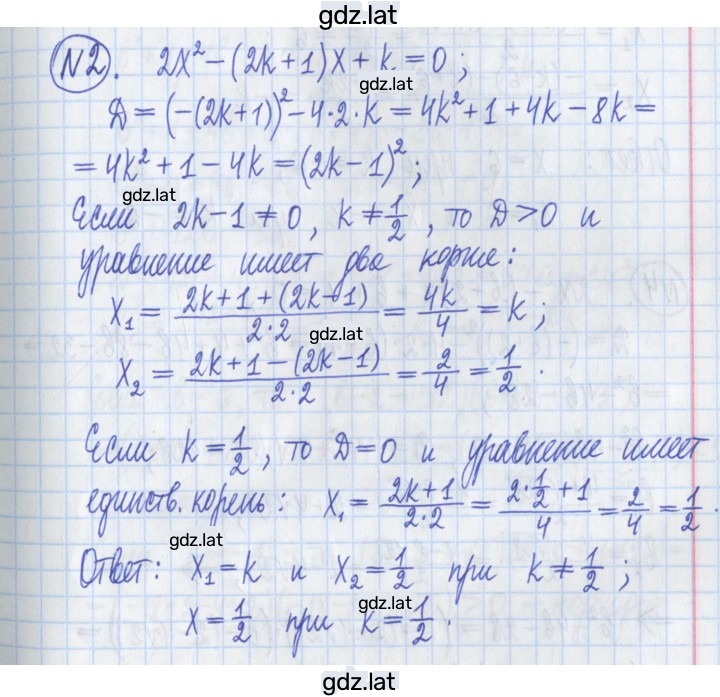 gdz.lat
№2. 2x² − (2k + 1)x + k = 0;
gdz.lat
D = (−(2k+1))² − 4·2·k = 4k² + 1 + 4k − 8k =
= 4k² + 1 − 4k = (2k − 1)²;
gdz.lat
Если 2k − 1 ≠ 0, k ≠ 1/2, то D > 0 и
уравнение имеет два корня:
x₁ = (2k + 1 + (2k − 1))/(2·2) = 4k/4 = k;
gdz.lat
x₂ = (2k + 1 − (2k − 1))/(2·2) = 2/4 = 1/2.
Если k = 1/2, то D = 0 и уравнение имеет
единств. корень: x₁ = (2k + 1)/(2·2) = (2·1/2 + 1)/4 = 2/4 = 1/2.
gdz.lat
Ответ: x₁ = k и x₂ = 1/2 при k ≠ 1/2;
gdz.lat
x = 1/2 при k = 1/2.
gdz.lat